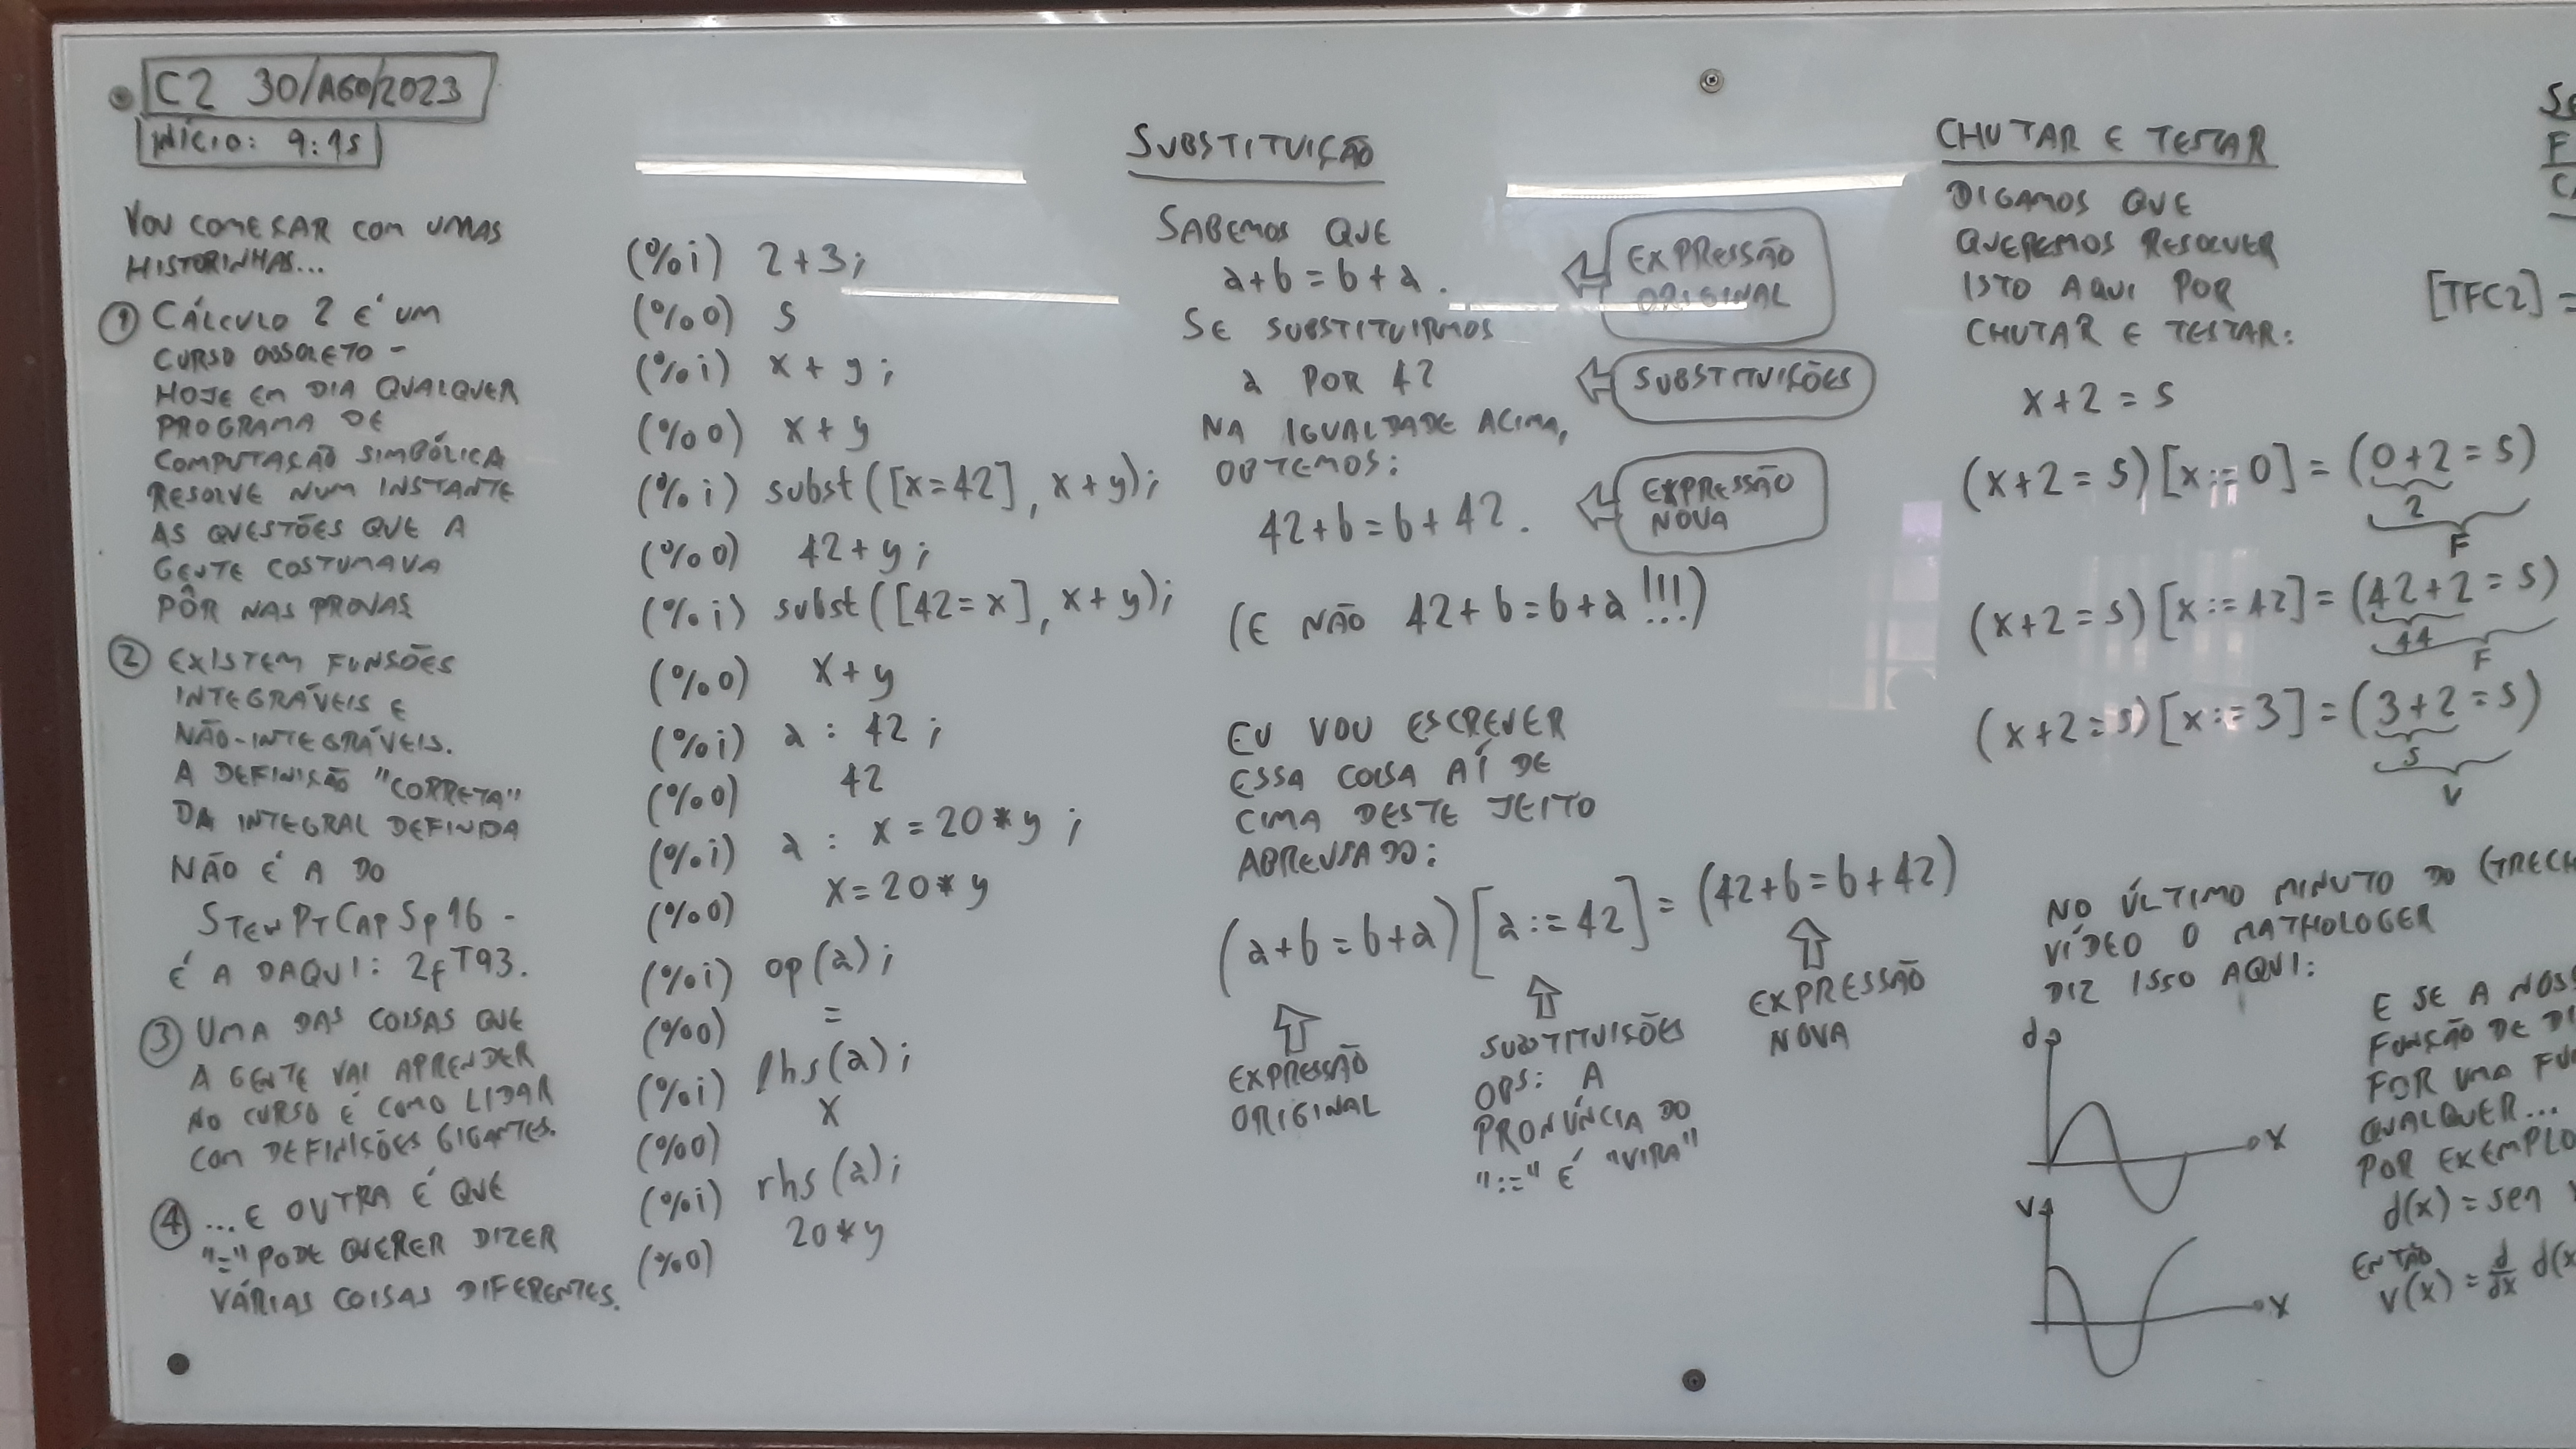 C2 30/AGO/2023
INÍCIO: 9:15
VOU COMEÇAR COM UMAS
HISTORINHAS...
① CÁLCULO 2 É UM
CURSO OBSOLETO -
HOJE EM DIA QUALQUER
PROGRAMA DE
COMPUTAÇÃO SIMBÓLICA
RESOLVE NUM INSTANTE
AS QUESTÕES QUE A
GENTE COSTUMAVA
PÔR NAS PROVAS
② EXISTEM FUNÇÕES
INTEGRÁVEIS E
NÃO-INTEGRÁVEIS.
A DEFINIÇÃO "CORRETA"
DA INTEGRAL DEFINIDA
NÃO É A DO
STEWPTCAP5P16 -
É A DAQUI: 2fT93.
③ UMA DAS COISAS QUE
A GENTE VAI APRENDER
NO CURSO É COMO LIDAR
COM DEFINIÇÕES GIGANTES.
④ ...E OUTRA É QUE
"=" PODE QUERER DIZER
VÁRIAS COISAS DIFERENTES.
(%i) 2+3;
(%o) 5
(%i) x+y;
(%o) x+y
(%i) subst([x=42], x+y);
(%o) 42+y;
(%i) subst([42=x], x+y);
(%o) x+y
(%i) a : 42;
(%o) 42
(%i) a : x=20*y;
(%o) x=20*y
(%i) op(a);
(%o) =
(%i) lhs(a);
(%o) x
(%i) rhs(a);
(%o) 20*y
SUBSTITUIÇÃO
SABEMOS QUE
a+b=b+a.
SE SUBSTITUIRMOS
a POR 42
NA IGUALDADE ACIMA,
OBTEMOS:
42+b=b+42.
(E NÃO 42+b=b+a!!!)
EXPRESSÃO
ORIGINAL
SUBSTITUIÇÕES
EXPRESSÃO
NOVA
EU VOU ESCREVER
ESSA COISA AÍ DE
CIMA DESTE JEITO
ABREVIADO:
(a+b=b+a)[a:=42]=(42+b=b+42)
EXPRESSÃO
ORIGINAL
SUBSTITUIÇÕES
OBS: A
PRONÚNCIA DO
":=" É "VIRA"
EXPRESSÃO
NOVA
CHUTAR E TESTAR
DIGAMOS QUE
QUEREMOS RESOLVER
ISTO AQUI POR
CHUTAR E TESTAR:
x+2=5
(x+2=5)[x:=0]=(0+2=5)
2
F
(x+2=5)[x:=42]=(42+2=5)
44
F
(x+2=5)[x:=3]=(3+2=5)
5
V
NO ÚLTIMO MINUTO DO (TRECH
VÍDEO O MATHOLOGER
DIZ ISSO AQUI:
d
x
v
x
E SE A NOSS
FUNÇÃO DE DI
FOR UMA FU
QUALQUER...
POR EXEMPLO
d(x)=sen
ENTÃO
v(x)=d/dx d(x
[TFC2]=